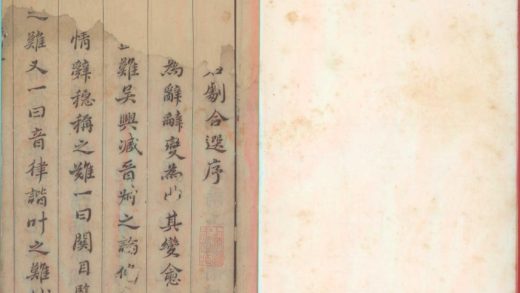 劇合選序
為辭辭變為曲其變愈
難吳興臧晉叔之論
情辭穩稱之難一曰關目
之難又一曰音律諧叶之難